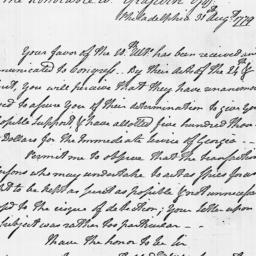 Philadelphia 31st Augt 1779
Your favor of the 10 Ult. has been received, &
municated to Congress. By their Acts of the 24 &
you will perceive that they have unanimous
to assure you of their determination to give you
possible support & have allotted five hundred thou
Dollars for the Immediate service of Georgia --
Permit me to observe that the transaction
persons who may undertake to act as spies for us
to be kept as secret as possible & not unnecessa
to the risque of detection; your letter upon
subject was rather too particular --
I have the honor to be Sir